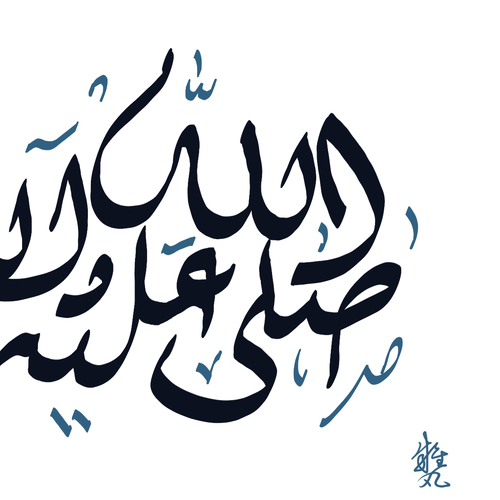 صلى الله عليه وآله